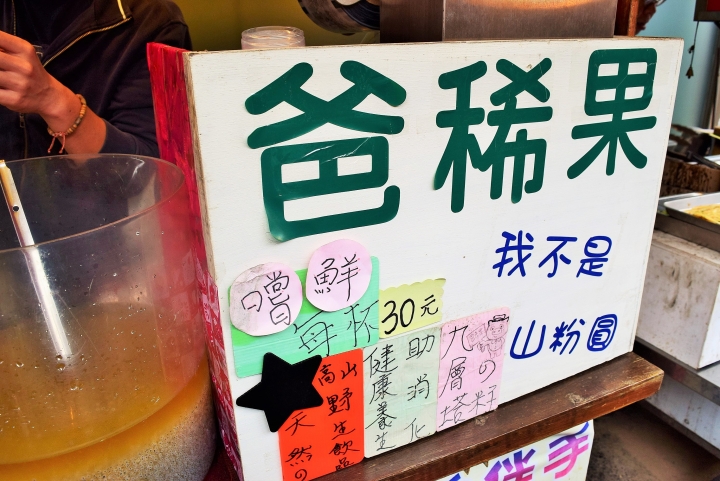 爸稀果
我不是
山粉圓
嚐鮮
每杯
30元
高山野生飲品
天然の
健康養生
助消化
九層塔の籽
伴手